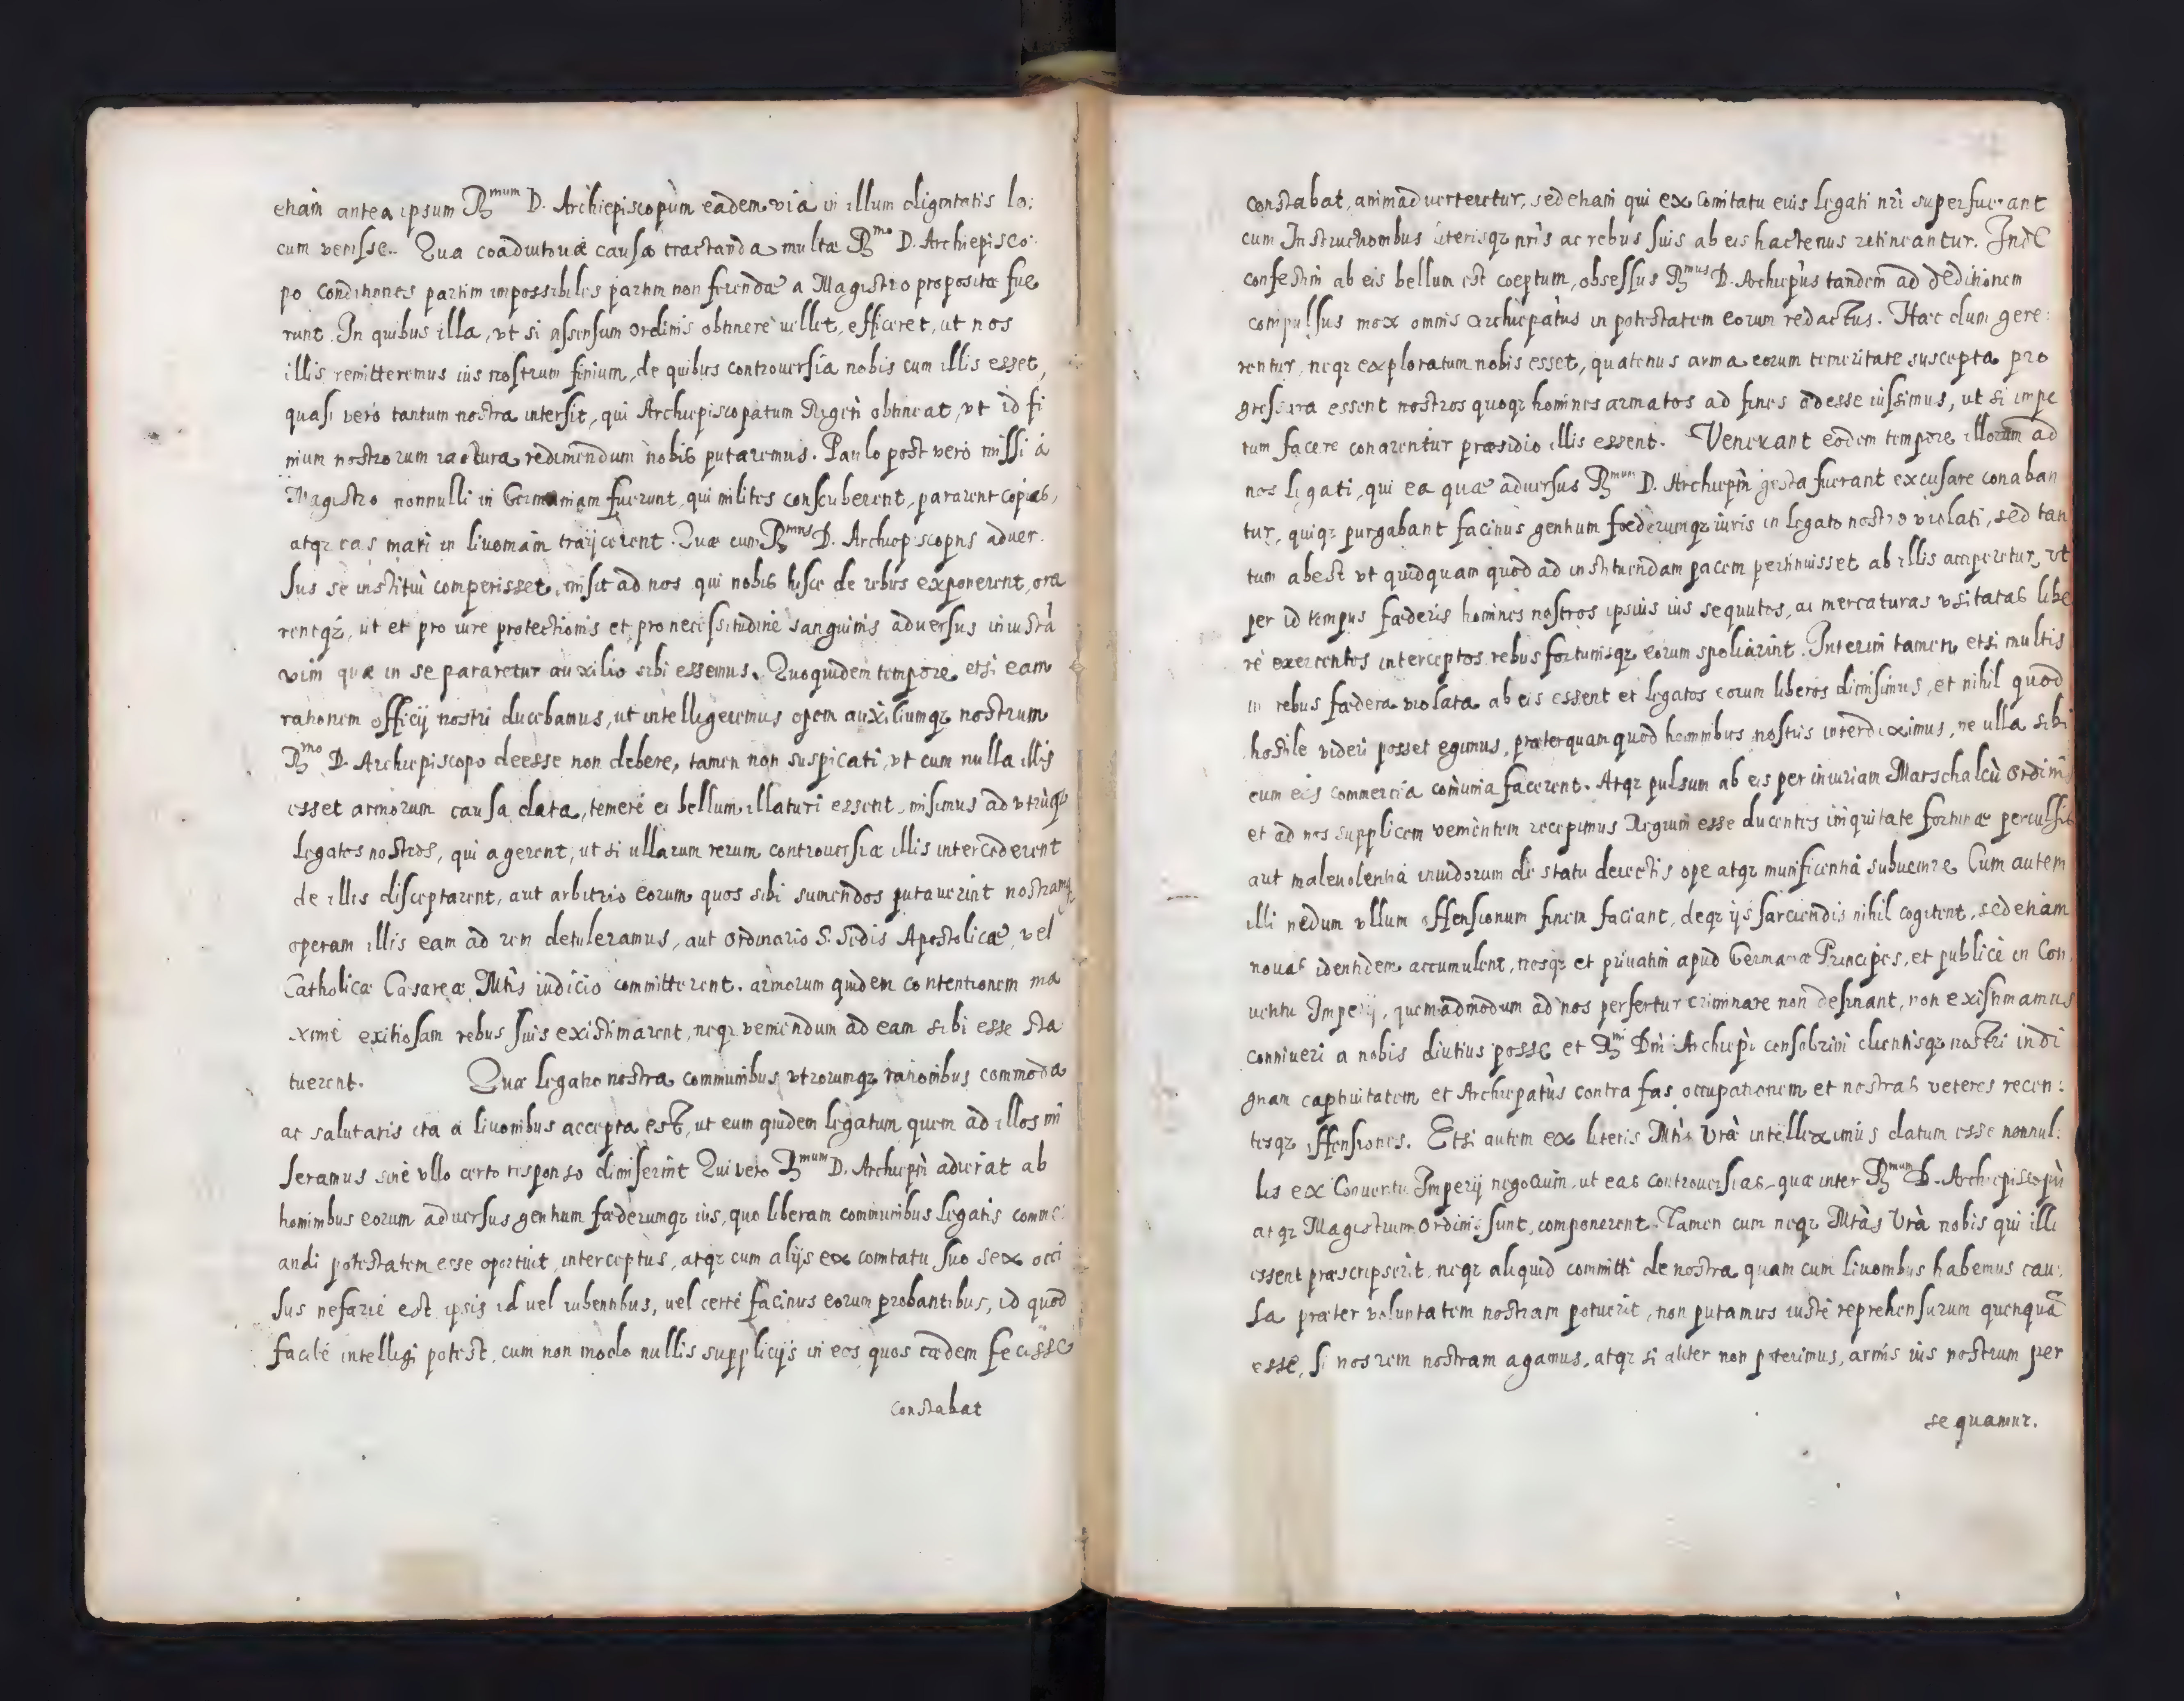 etiam antea ipsum Rmum D. Archiepiscopum eadem via in illum dignitatis lo:
cum venisse. Qua coadiutoriae causa tractanda multae Rmo D. Archiepisco:
po conditiones partim impossibiles partim non ferendae a Magistro propositae fue
runt. In quibus illa, vt si assensum ordinis obtinere uellet, efficeret, ut nos
illis remitteremus ius nostrum finium, de quibus controuersia nobis cum illis esset,
quasi vero tantum nostra intersit, qui Archiepiscopatum Rigen obtineat, vt id fi
nium nostrorum iactura redimendum nobis putaremus. Paulo post vero missi à
Magistro nonnulli in Germaniam fuerunt, qui milites conscriberent, pararent copias,
atqz eas mari in liuoniam traijcerent. Quae cum Rmus D. Archiepiscopus aduer
sus se institui comperisset, misit ad nos qui nobis hisce de rebus exponerent, ora
rentqz, ut et pro iure protectionis et pro necessitudine sanguinis aduersus iniustà
vim quae in se pararetur auxilio sibi essemus. Quo quidem tempore, etsi eam
rationem officij nostri ducebamus, ut intelligeremus opem auxiliumqz nostrum
Rmo D. Archiepiscopo deesse non debere, tamen non suspicati, vt cum nulla illis
esset armorum causa data, temere ei bellum illaturi essent, misimus ad vtrùqz
legatos nostros, qui agerent, ut si ullarum rerum controuersiae illis intercederent
de illis disceptarent, aut arbitrio eorum quos sibi sumendos putauerint nostramqz
operam illis eam ad rem detuleramus, aut ordinario S. Sedis Apostolicae, vel
Catholicae Caesareae Mtis iudicio committerent. armorum quidem contentionem ma
xime exitiosam rebus suis existimarent, neqz veniendum ad eam sibi esse sta
tuerent. Quae legatio nostra communibus vtrorumqz rationibus commoda
ac salutaris ita a liuonibus accepta est, ut eum quidem legatum quem ad illos mi
seramus sine vllo certo responso dimiserint Qui vero Rmum D. Archiepm adierat ab
hominibus eorum aduersus gentium faederumqz ius, quo liberam communibus legatis comme:
andi potestatem esse oportuit, interceptus, atqz cum alijs ex comitatu suo sex occi
sus nefarie est ipsis id uel iubentibus, uel certe facinus eorum probantibus, id quod
facile intelligi potest, cum non modo nullis supplicijs in eos quos caedem fecisse
constabat
constabat, animaduerteretur, sed etiam qui ex Comitatu eius legati nri superfuerant
cum Instructionibus literisqz nris ac rebus suis ab eis hactenus retineantur. Inde
confestim ab eis bellum est coeptum, obsessus Rmus D. Archiepus tandem ad deditionem
compulsus mox omnis archiepatus in potestatem eorum redactus. Haec dum gere:
rentur, neqz exploratum nobis esset, quatenus arma eorum temeritate suscepta pro
gressura essent nostros quoqz homines armatos ad fines adesse iussimus, ut si impe
tum facere conarentur praesidio illis essent. Venerant eodem tempore illorum ad
nos legati, qui ea quae aduersus Rmum D. Archiepm gesta fuerant excusare conaban
tur, quiqz purgabant facinus gentium foederumqz iuris in legato nostro violati, sed tan
tum abest vt quidquam quod ad instituendam pacem pertinuisset ab illis acciperetur, vt
per id tempus faederis homines nostros ipsius ius sequutos, ac mercaturas vsitatas libe
re exercentes interceptos rebus fortunisqz eorum spoliarint. Interim tamen etsi multis
in rebus faedera violata ab eis essent et legatos eorum liberos dimisimus, et nihil quod
hostile videri posset egimus, praeterquam quod hominibus nostris interdiximus, ne ulla sibi
cum eis commercia comunia facerent. Atqz pulsum ab eis per iniuriam Marschalcù ordinis
et ad nos supplicem venientem recepimus Regium esse ducentes iniquitate fortunae perculsis
aut maleuolentia inuidorum de statu deiectis ope atqz munificentia subuenire Cum autem
illi nedum vllum offensionum finem faciant, deqz ijs sarciendis nihil cogitent, sed etiam
nouas identidem accumulent, nosqz et priuatim apud Germaniae Principes, et publice in Con
uentu Imperij, quemadmodum ad nos perfertur criminare non desinant, non existimamus
conniueri a nobis diutius posse et Rmi Dni Archiepi consobrini clientisqz nostri indi
gnam captiuitatem et Archiepatus contra fas occupationem et nostras veteres recen:
tesqz offensiones. Etsi autem ex literis Mtis Vrà intelleximus datum esse nonnul:
lis ex Conuentu Imperij negotium, ut eas controuersias, quae inter Rmum D. Archiepiscopù
atqz Magistrum ordinis sunt, componerent. Tamen cum neqz Mtas Vrà nobis qui illi
essent praescripserit, neqz aliquid committi de nostra quam cum liuonibus habemus cau:
sa praeter voluntatem nostram potuerit, non putamus iuste reprehensurum quenquà
esse, si nos rem nostram agamus, atqz si aliter non poterimus, armis ius nostrum per
sequamur.